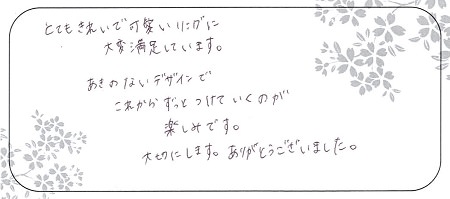 とてもきれいで可愛いリングに
大変満足しています。
あきのないデザインで
これからずっとつけていくのが
楽しみです。
大切にします。ありがとうございました。